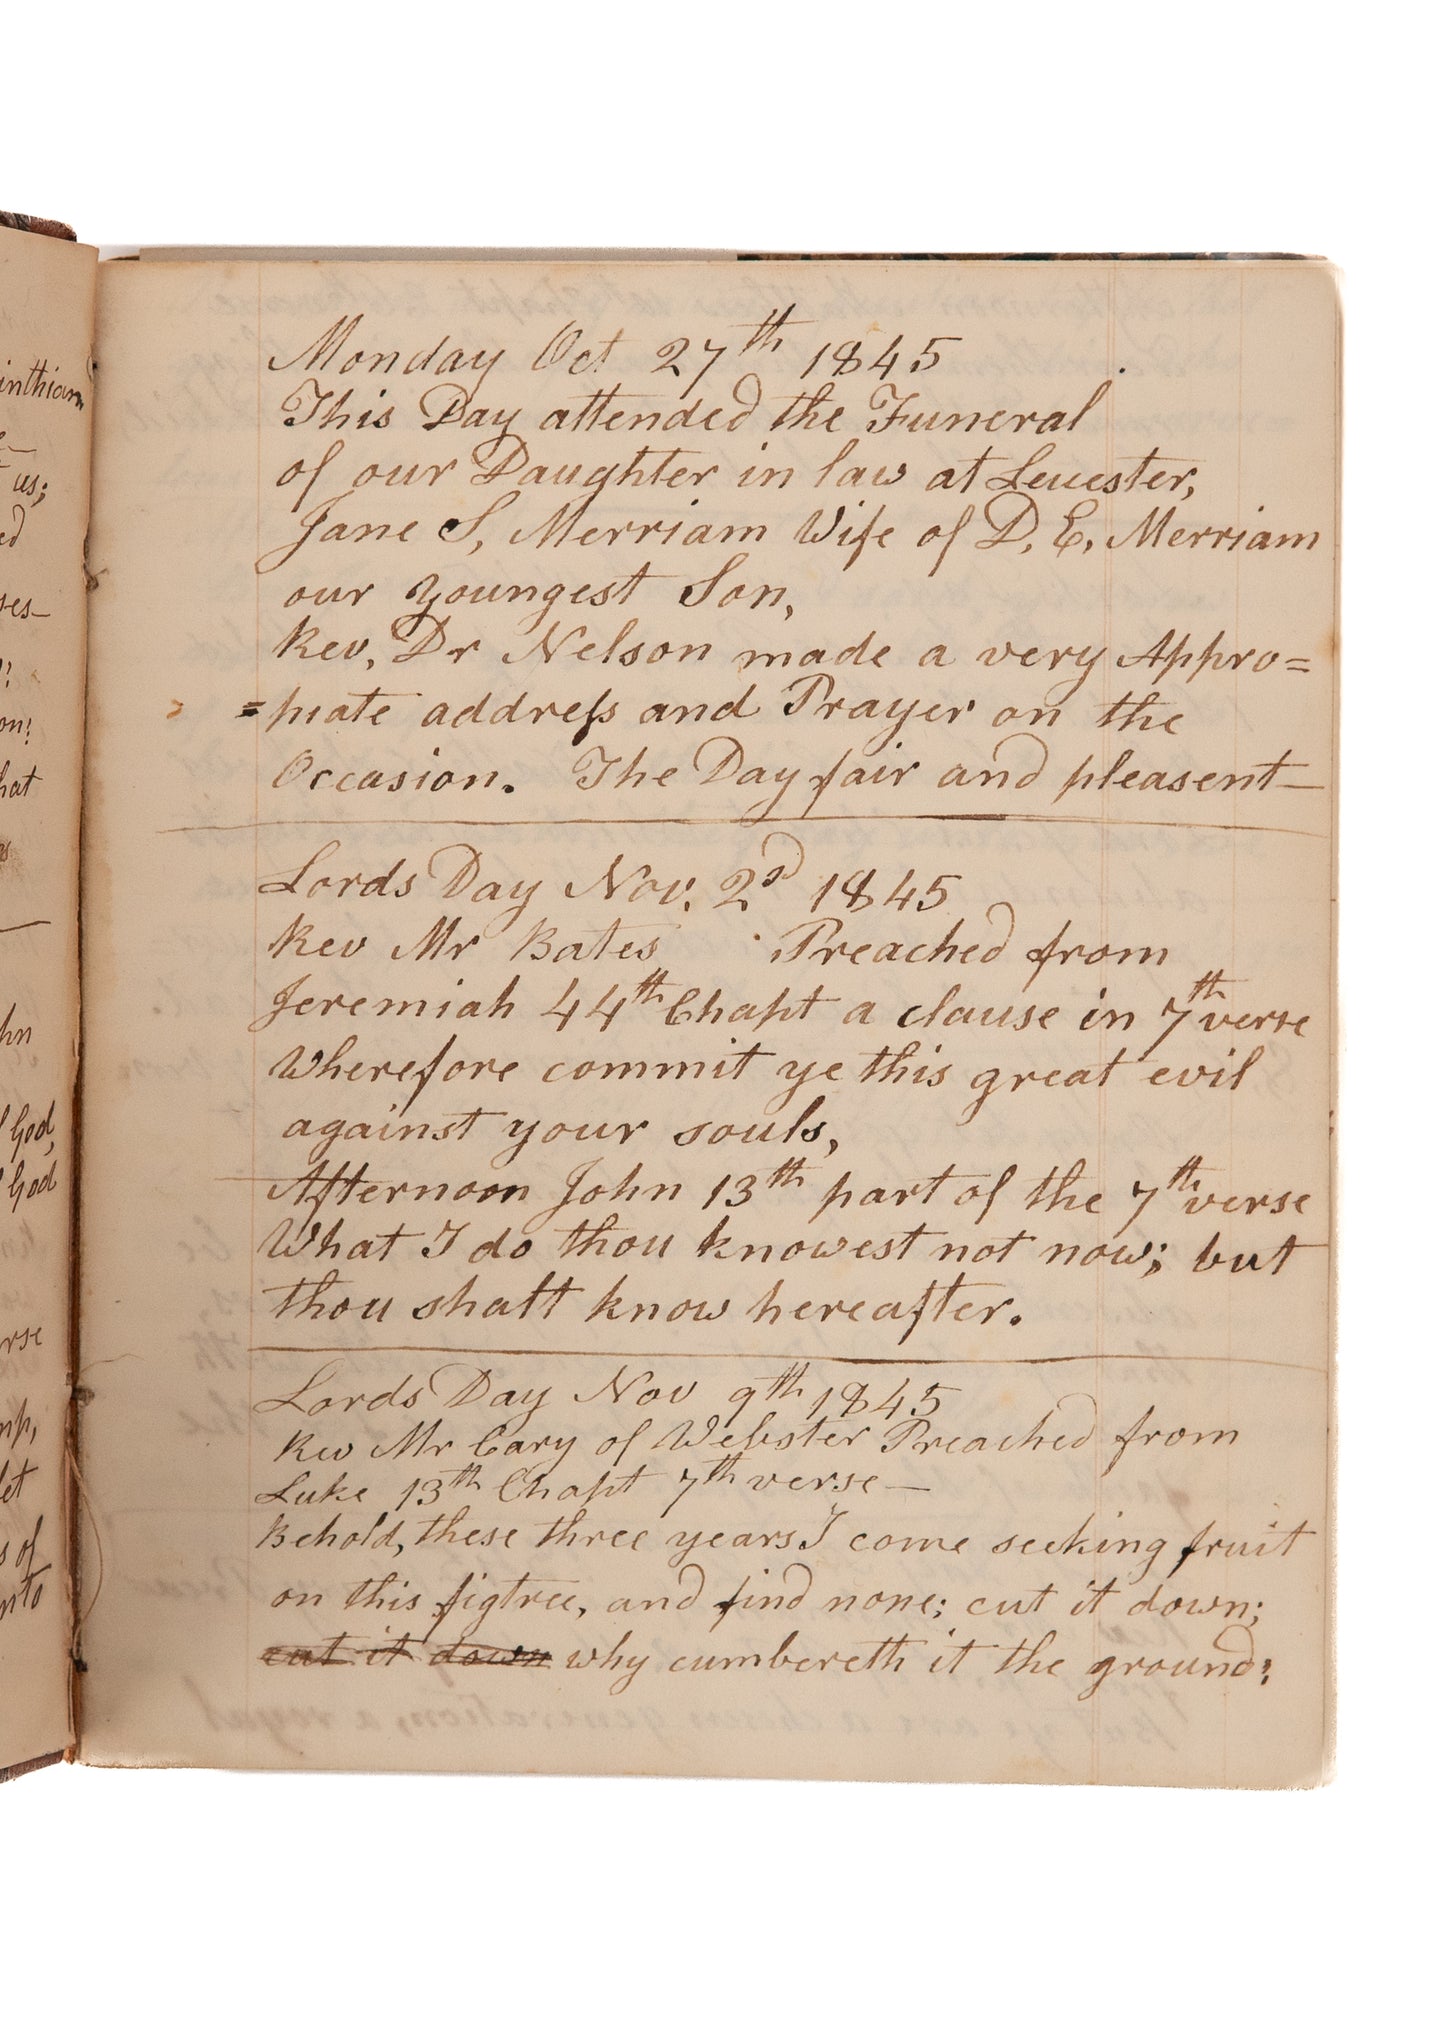 inthians
us;
ed
ses—
on?
hat
hn
God,
God
rse
mp,
let
s of
nto
Monday Oct 27th 1845
This Day attended the Funeral
of our Daughter in law at Leicester,
Jane S, Merriam Wife of D. E. Merriam
our youngest Son,
Rev. Dr Nelson made a very Appro=
=piate addreſs and Prayer on the
Occasion. The Day fair and pleasent—
Lords Day Nov. 2d 1845
Rev Mr Bates Preached from
Jeremiah 44th Chapt a clause in 7th verse
Wherefore commit ye this great evil
against your souls,
Afternoon John 13th part of the 7th verse
What I do thou knowest not now; but
thou shalt know hereafter.
Lords Day Nov 9th 1845
Rev Mr Cary of Webster Preached from
Luke 13th Chapt 7th verse—
Behold, these three years I come seeking fruit
on this figtree, and find none; cut it down;
cut it down why cumbereth it the ground?